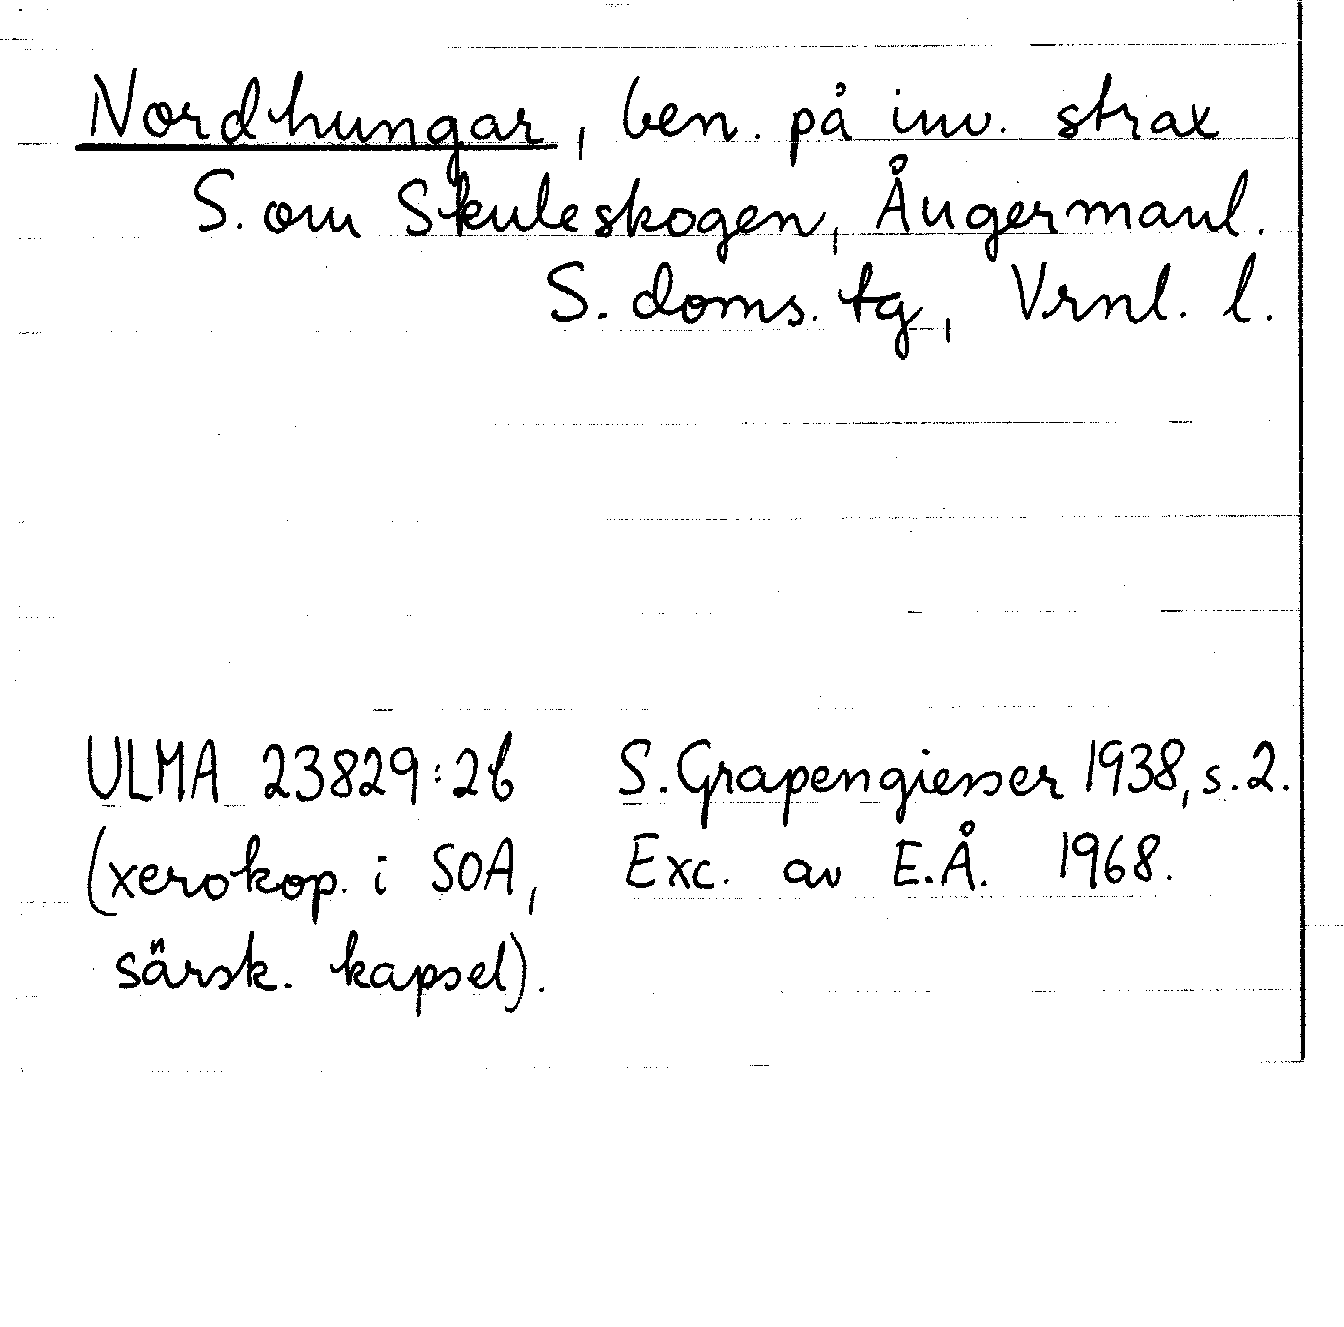 Nordhungar, ben. på inv. strax
S. om Skuleskogen, Ångermanl.
S. doms. tg, Vrnl. l.
ULMA 23829:2b S. Grapengiesser 1938, s. 2.
(xerokop. i SOA, Exc. av E.Å. 1968.
särsk. kapsel).